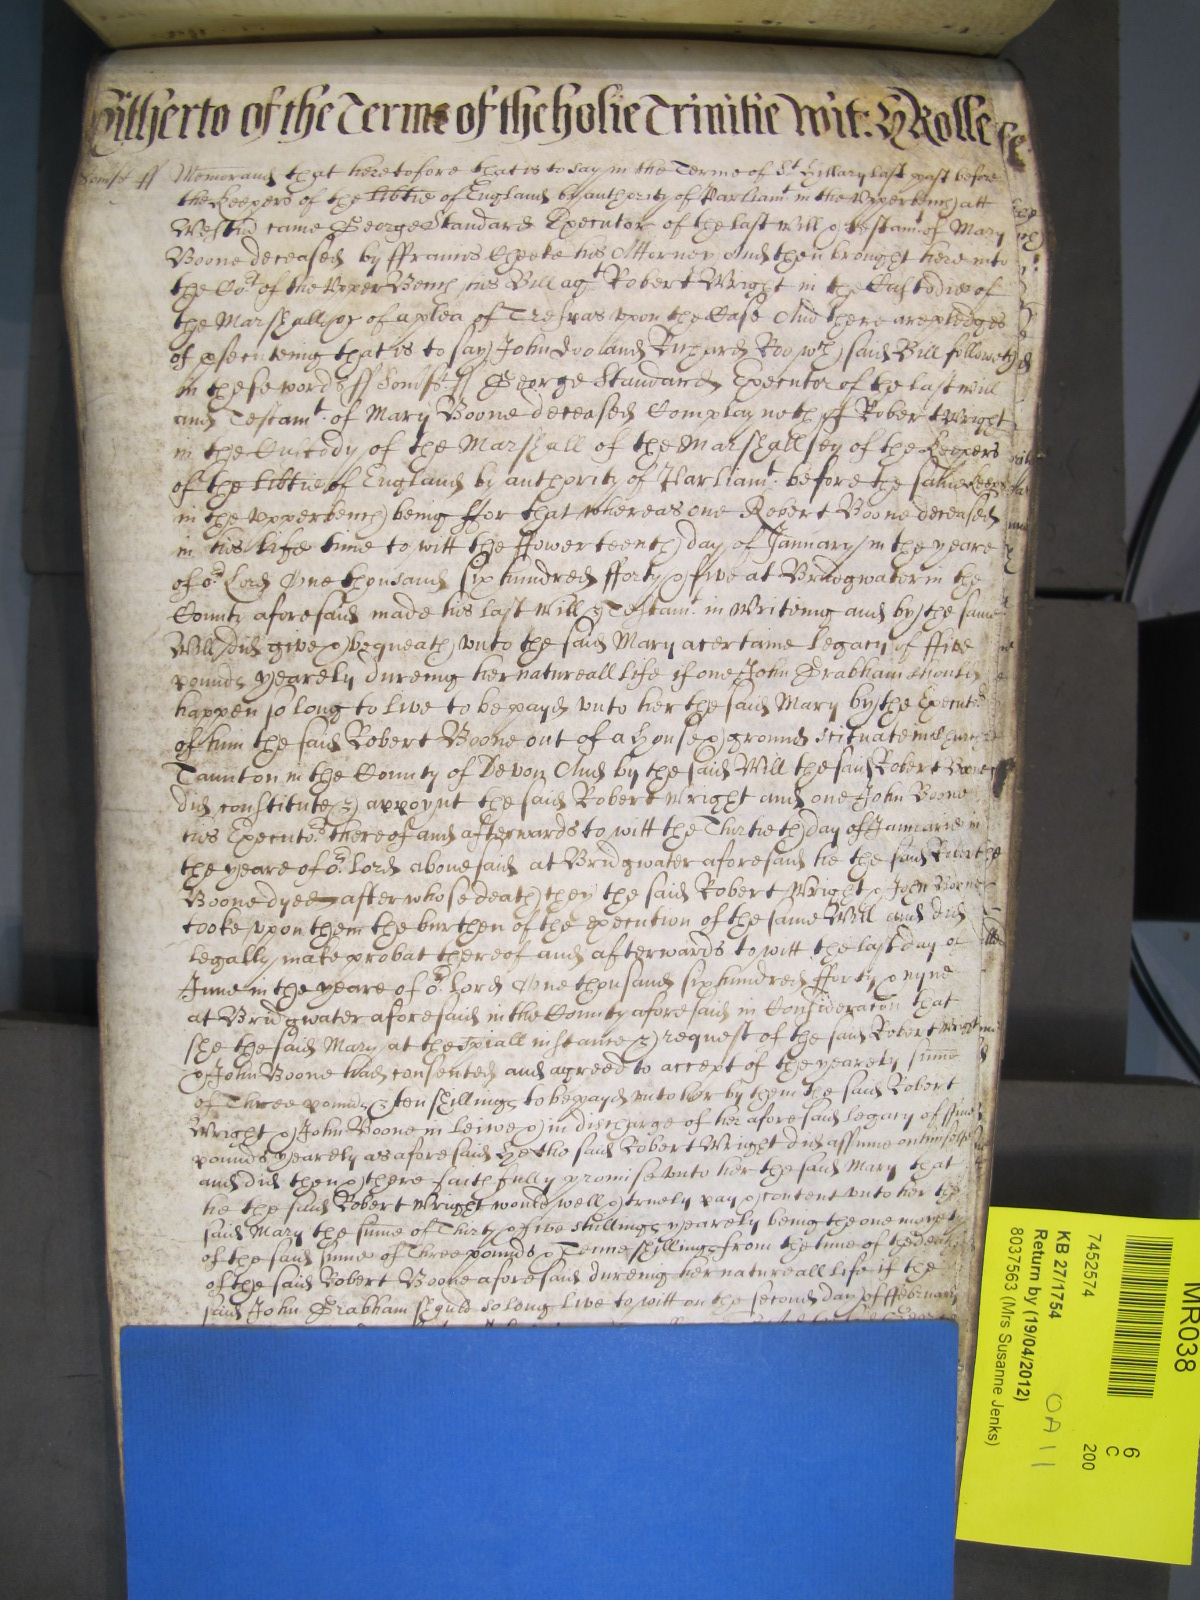 Hitherto of the Terme of the holie Trinitie Wit: H Rolle
Somst ss Memorand that heretofore that is to say in the Terme of St Hillary last past before
the Keepers of the libtie of England by authority of Parliamt in the Vpperbench att
Westm came George Standard Executor of the last Will & testamt of Mary
Boone deceased by ffrancis Cheeke his Attorney And then brought here into
the Cort of the Vpper Bench his Bill agt Robert Wright in the Custodie of
the Marshall &c of a plea of Trespas vpon the Case And there are pledges
of psecuteing that is to say John Doo and Richard Roo wch said Bill followeth
in these words ss Somst ss George Standard Executor of the last will
and Testamt of Mary Boone deceased Complayneth of Robert Wright
in the Custody of the Marshall of the Marshallsey of the Keepers
of the libtie of England by authority of Parliamt before the same Keeps
in the Vpperbench being ffor that whereas one Robert Boone deceased
in his life time to witt the ffowerteenth day of January in the yeare
of or Lord One thousand six hundred fforty & five at Bridgwater in the
County aforesaid made his last Will & Testamt in Writeing and by the same
Will did give & bequeath vnto the said Mary a certaine legacy of ffive
pounds yearely dureing her natureall life if one John Grabham should
happen so long to live to be payd vnto her the said Mary by the Executrs
of him the said Robert Boone out of a house & ground scituate in
Taunton in the County of Devon And by the said Will the said Robert Boone
did constitute & appoynt the said Robert Wright and one John Boone
his Executrs thereof and afterwards to witt the Thirtieth day of Januarie in
the yeare of or Lord abovesaid at Bridgwater aforesaid he the said Robert
Boone dyed after whose death they the said Robert Wright & John Boone
tooke vpon them the burthen of the execution of the same Will and did
legally make probat thereof and afterwards to witt the last day of
June in the yeare of or Lord One thousand six hundred fforty & nyne
at Bridgwater aforesaid in the County aforesaid in Consideracon that
she the said Mary at the spiall instance & request of the said Robert Wright
& John Boone had consented and agreed to accept of the yearely summe
of Three pounds & ten shillings to be payd vnto her by them the said Robert
Wright & John Boone in leiwe & in discharge of her aforesaid legacy of ffive
pounds yearely as aforesaid he the said Robert Wright did assume on himselfe
and did then & there faithfully promise vnto her the said Mary that
he the said Robert Wright would well & truely pay & content vnto her the
said Mary the sume of Thirty & five shillings yearely being the one moyety
of the said sume of Three pounds & Tenne shillings from the time of the death
of the said Robert Boone aforesaid dureing her natureall life if the
said John Grabham should so long live to witt on the second day of ffebruary
MR038
7452574
KB 27/1754
Return by (19/04/2012)
8037563 (Mrs Susanne Jenks)
6
C
200
OA 11